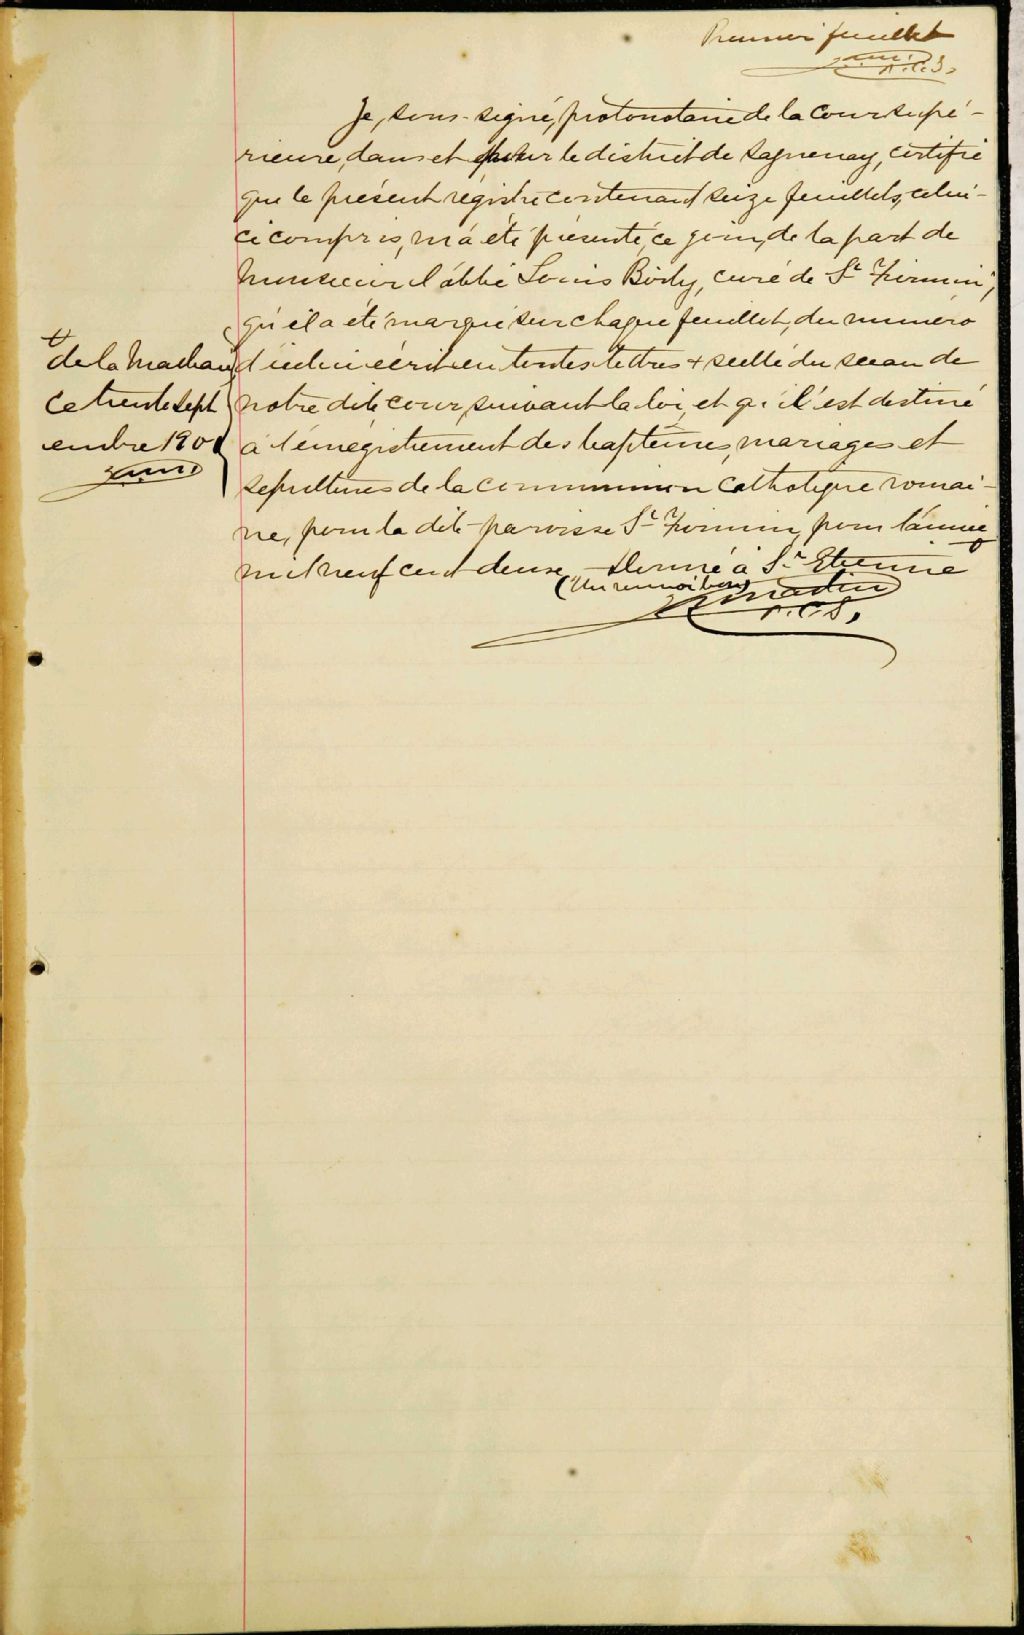 Premier feuillet
P.C.S.
Je, sous-signé, protonotaire de la Cour supé-
rieure, dans et pour le district de Saguenay, certifie
que le présent régistre contenant seize feuillets, celui-
ci compris, m'a été présenté, ce jour, de la part de
Monsieur l'abbé Louis Boily, curé de St Firmin,
qu'il a été marqué sur chaque feuillet, du numéro
d'icelui écrit en toutes lettres + scellé du sceau de
notre dite cour, suivant la loi, et qu'il est destiné
à l'enregistrement des baptêmes, mariages et
sepultures de la communion Catholique romai-
ne, pour la dite paroisse St Firmin, pour l'année
mil neuf cent deux. Donné à St Etienne
(Un renvoi bon)
P.C.S.
+
de la Malbaie
ce trente sept
embre 1901